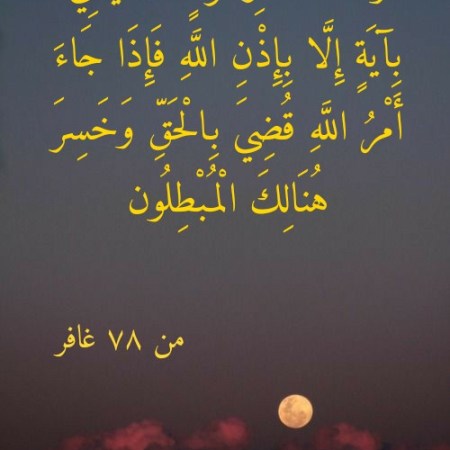 بِآيَةٍ إِلَّا بِإِذْنِ اللَّهِ فَإِذَا جَاءَ
أَمْرُ اللَّهِ قُضِيَ بِالْحَقِّ وَخَسِرَ
هُنَالِكَ الْمُبْطِلُون
من ٧٨ غافر